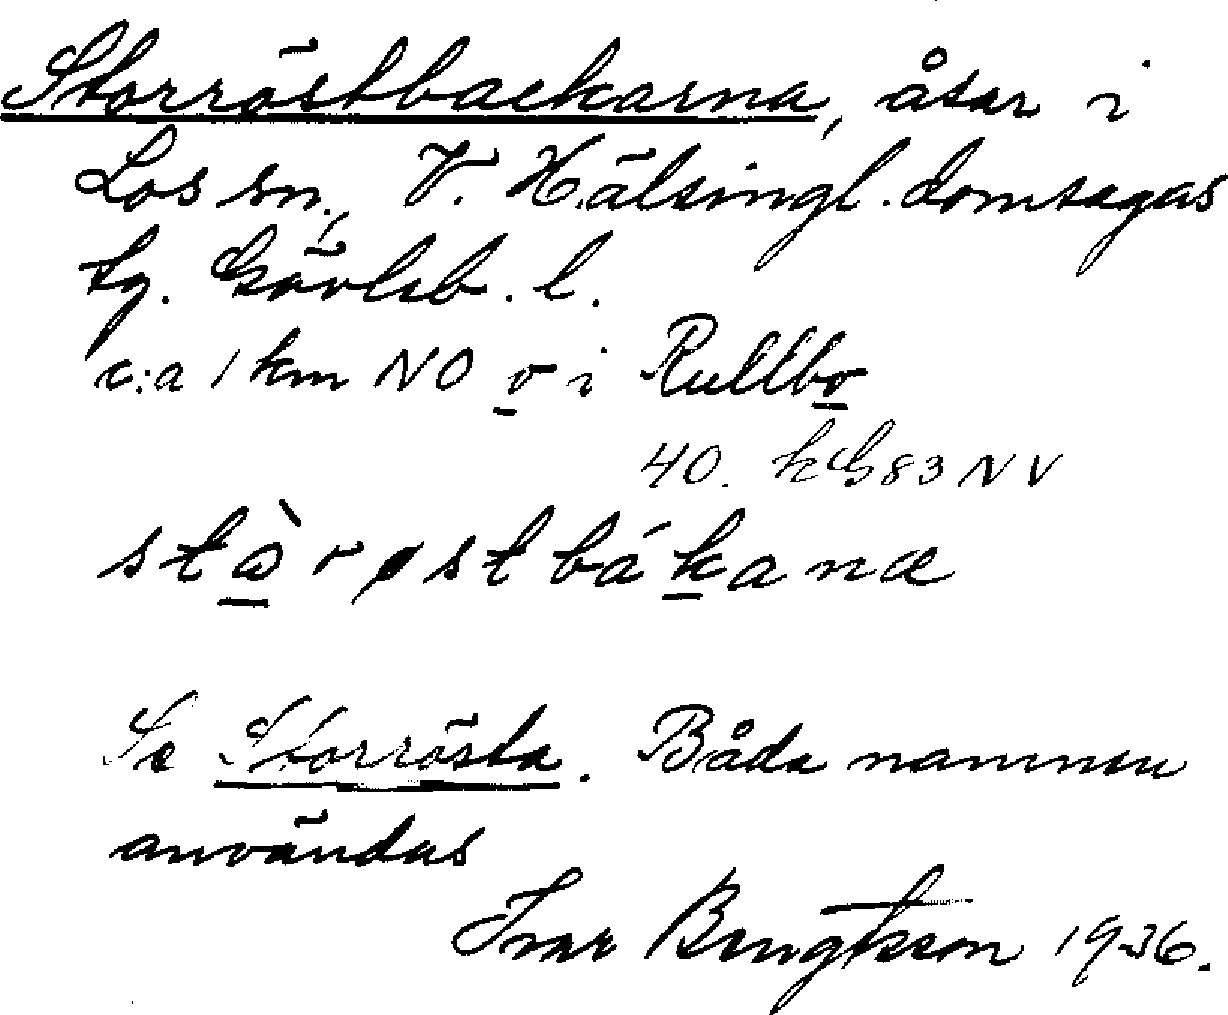 Storröstbackarna, åsar i
Los sn., V. Hälsingl. domsagas
tg. Gävleb. l.
c:a 1 km NO o i Rullbo
40. kG83NV
stòrøstbákanæ
Se Storrösta. Båda namnen
användas
Ivar Bengtsson 1936.